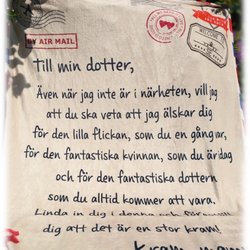 BY AIR MAIL
Till min dotter,
Även när jag inte är i närheten, vill jag
att du ska veta att jag älskar dig
för den lilla flickan, som du en gång var,
för den fantastiska kvinnan, som du är idag
och för den fantastiska dottern
som du alltid kommer att vara.
Linda in dig i denna och
dig att det är en stor kram!
Kram